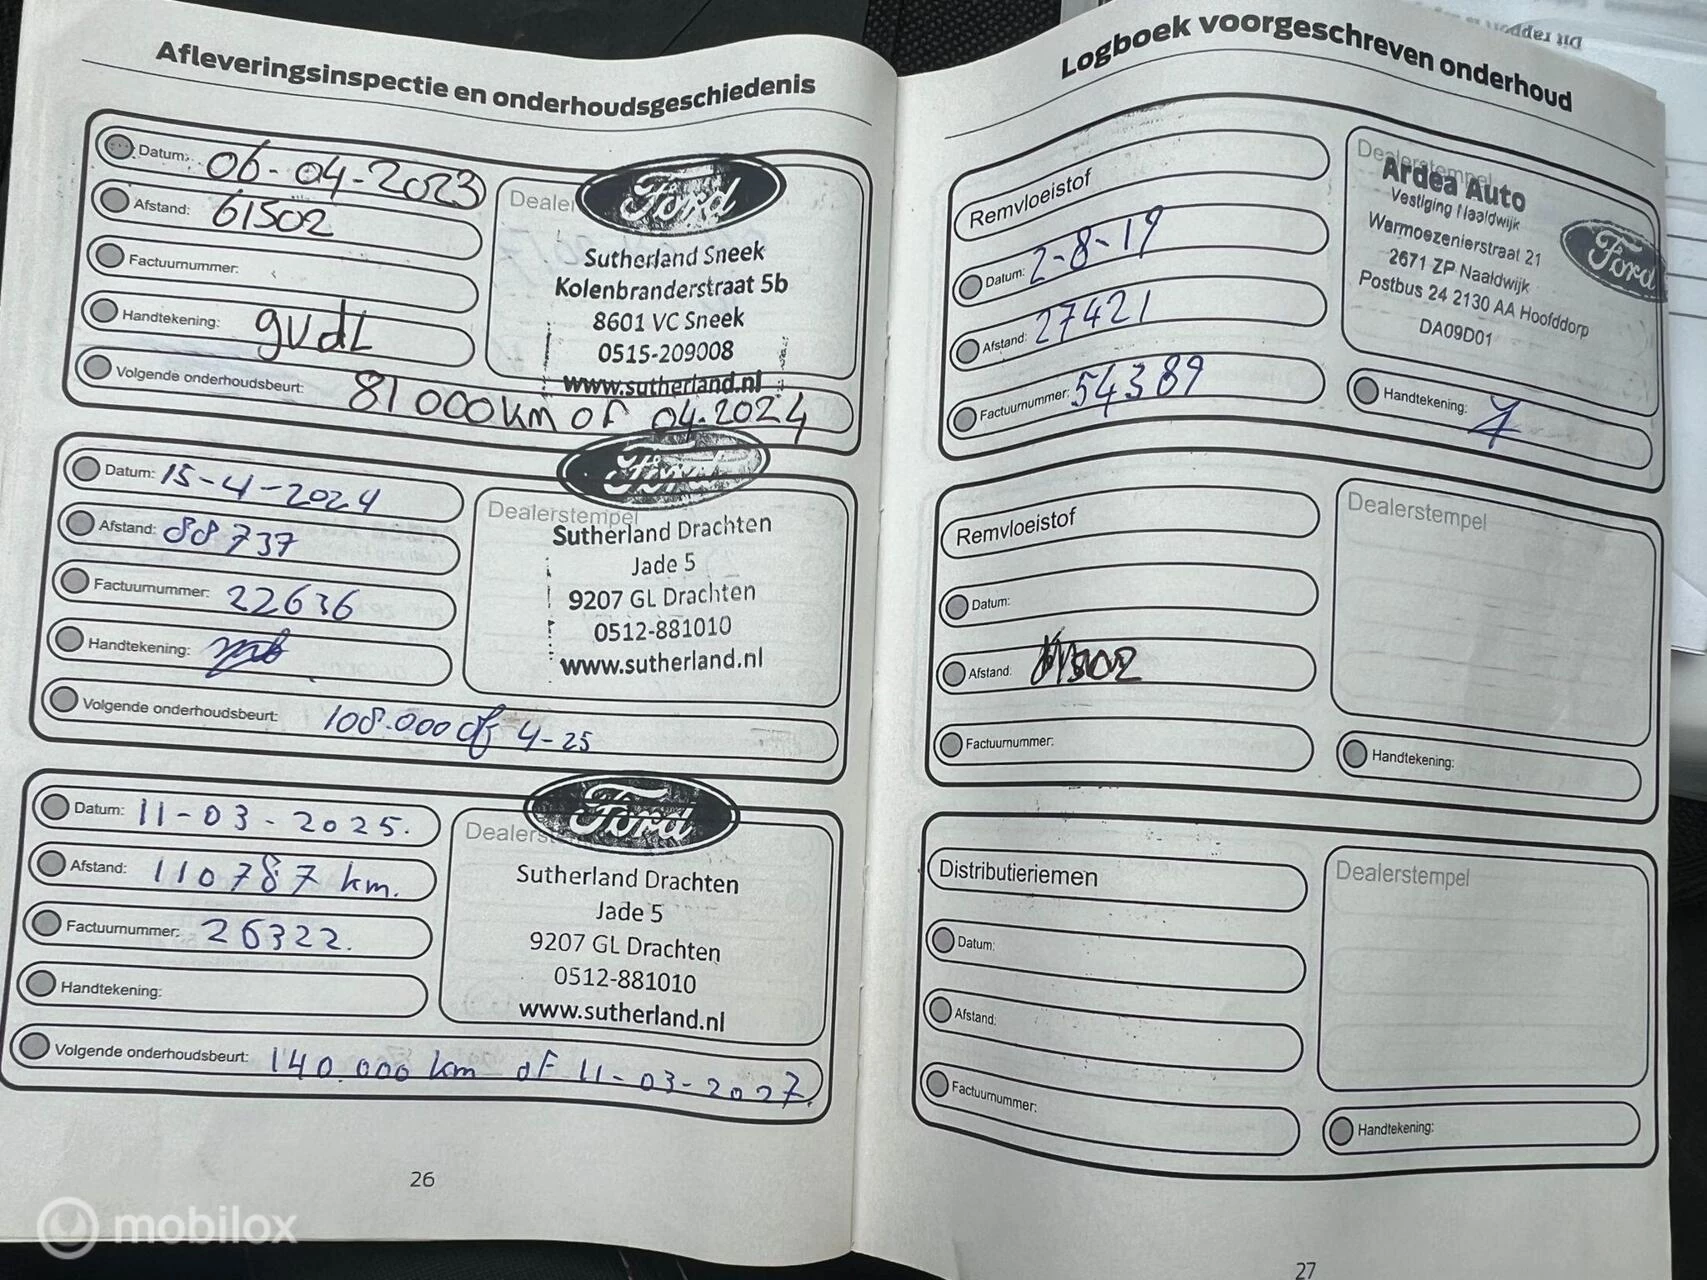 Dit rapport
Afleveringsinspectie en onderhoudsgeschiedenis
Datum: 06-04-2023
Afstand: 61502
Factuurnummer:
Handtekening: gvdL
Volgende onderhoudsbeurt: 81000km of 04-2024
Dealer
Ford
Sutherland Sneek
Kolenbranderstraat 5b
8601 VC Sneek
0515-209008
www.sutherland.nl
Datum: 15-4-2024
Afstand: 88737
Factuurnummer: 22636
Handtekening:
Volgende onderhoudsbeurt: 108.000 of 4-25
Ford
Dealerstempel
Sutherland Drachten
Jade 5
9207 GL Drachten
0512-881010
www.sutherland.nl
Datum: 11-03-2025.
Afstand: 110787 km.
Factuurnummer: 26322.
Handtekening:
Volgende onderhoudsbeurt: 140.000 km of 11-03-2027.
Ford
Dealers
Sutherland Drachten
Jade 5
9207 GL Drachten
0512-881010
www.sutherland.nl
26
Logboek voorgeschreven onderhoud
Remvloeistof
Datum: 2-8-19
Afstand: 27421
Factuurnummer: 54389
Dealerstempel
Ardea Auto
Vestiging Naaldwijk
Warmoezenierstraat 21
2671 ZP Naaldwijk
Postbus 24 2130 AA Hoofddorp
DA09D01
Ford
Handtekening:
Remvloeistof
Datum:
Afstand: 61502
Factuurnummer:
Dealerstempel
Handtekening:
Distributieriemen
Datum:
Afstand:
Factuurnummer:
Dealerstempel
Handtekening:
27
mobilox